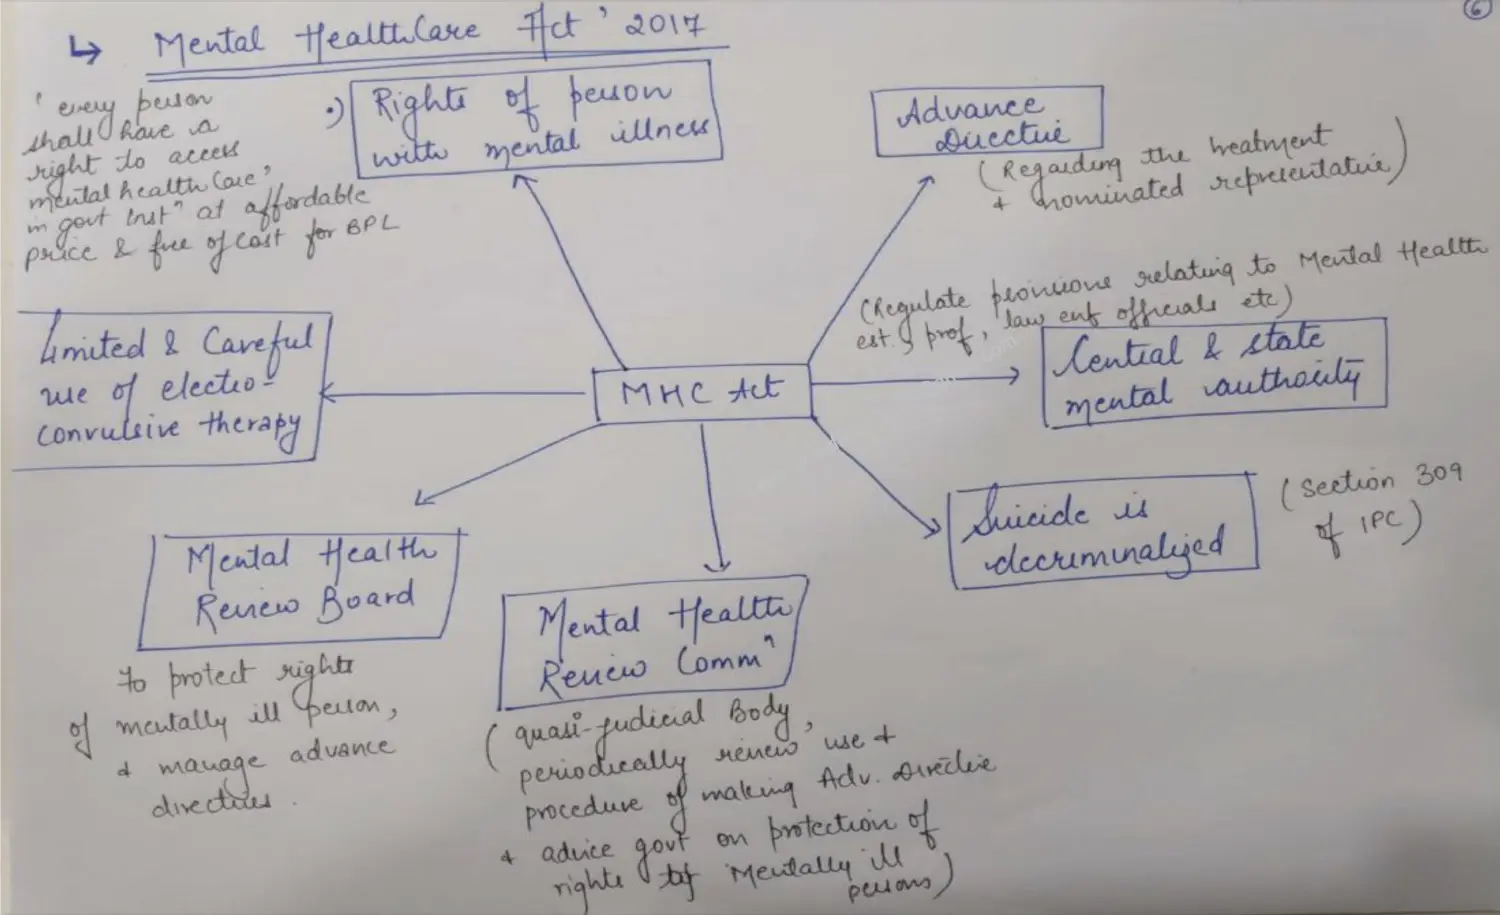 6
↳ Mental HealthCare Act' 2017
'every person
shall have a
right to access
mental health Care',
in govt Instⁿ at affordable
price & free of cost for BPL
•) Rights of person
with mental illness
Advance
Directive
(Regarding the treatment
+ nominated representative)
(Regulate provisions relating to Mental Health
est., prof, law enf officials etc)
Central & state
mental authority
Limited & Careful
use of electro-
convulsive therapy
MHC Act
Suicide is
decriminalized
(Section 309
of IPC)
Mental Health
Review Board
to protect rights
of mentally ill person,
+ manage advance
directives.
Mental Health
Review Commⁿ
(quasi-judicial Body,
periodically review use +
procedure of making Adv. Directive
+ advice govt on protection of
rights of Mentally ill
persons)